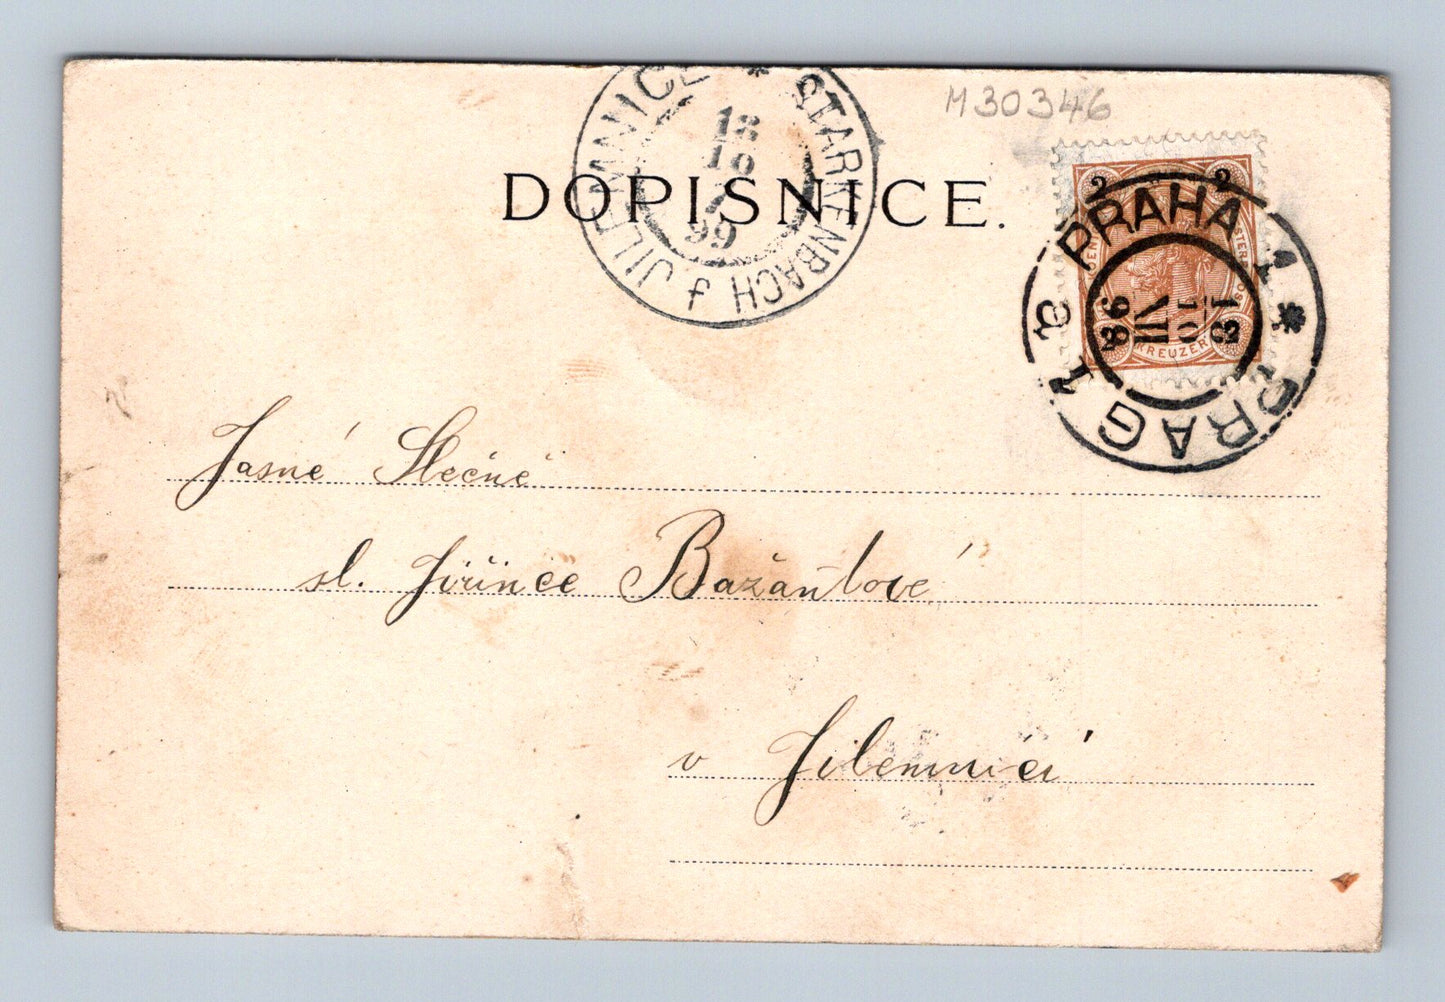 M30346
DOPISNICE.
JILEMNICE * STARKENBACH f
18
10
7
99
2 2
PRAHA 1 * PRAG 1 a
KREUZER
Jasné Slečné
sl. Jiřince Bažantové
v Jilemnici